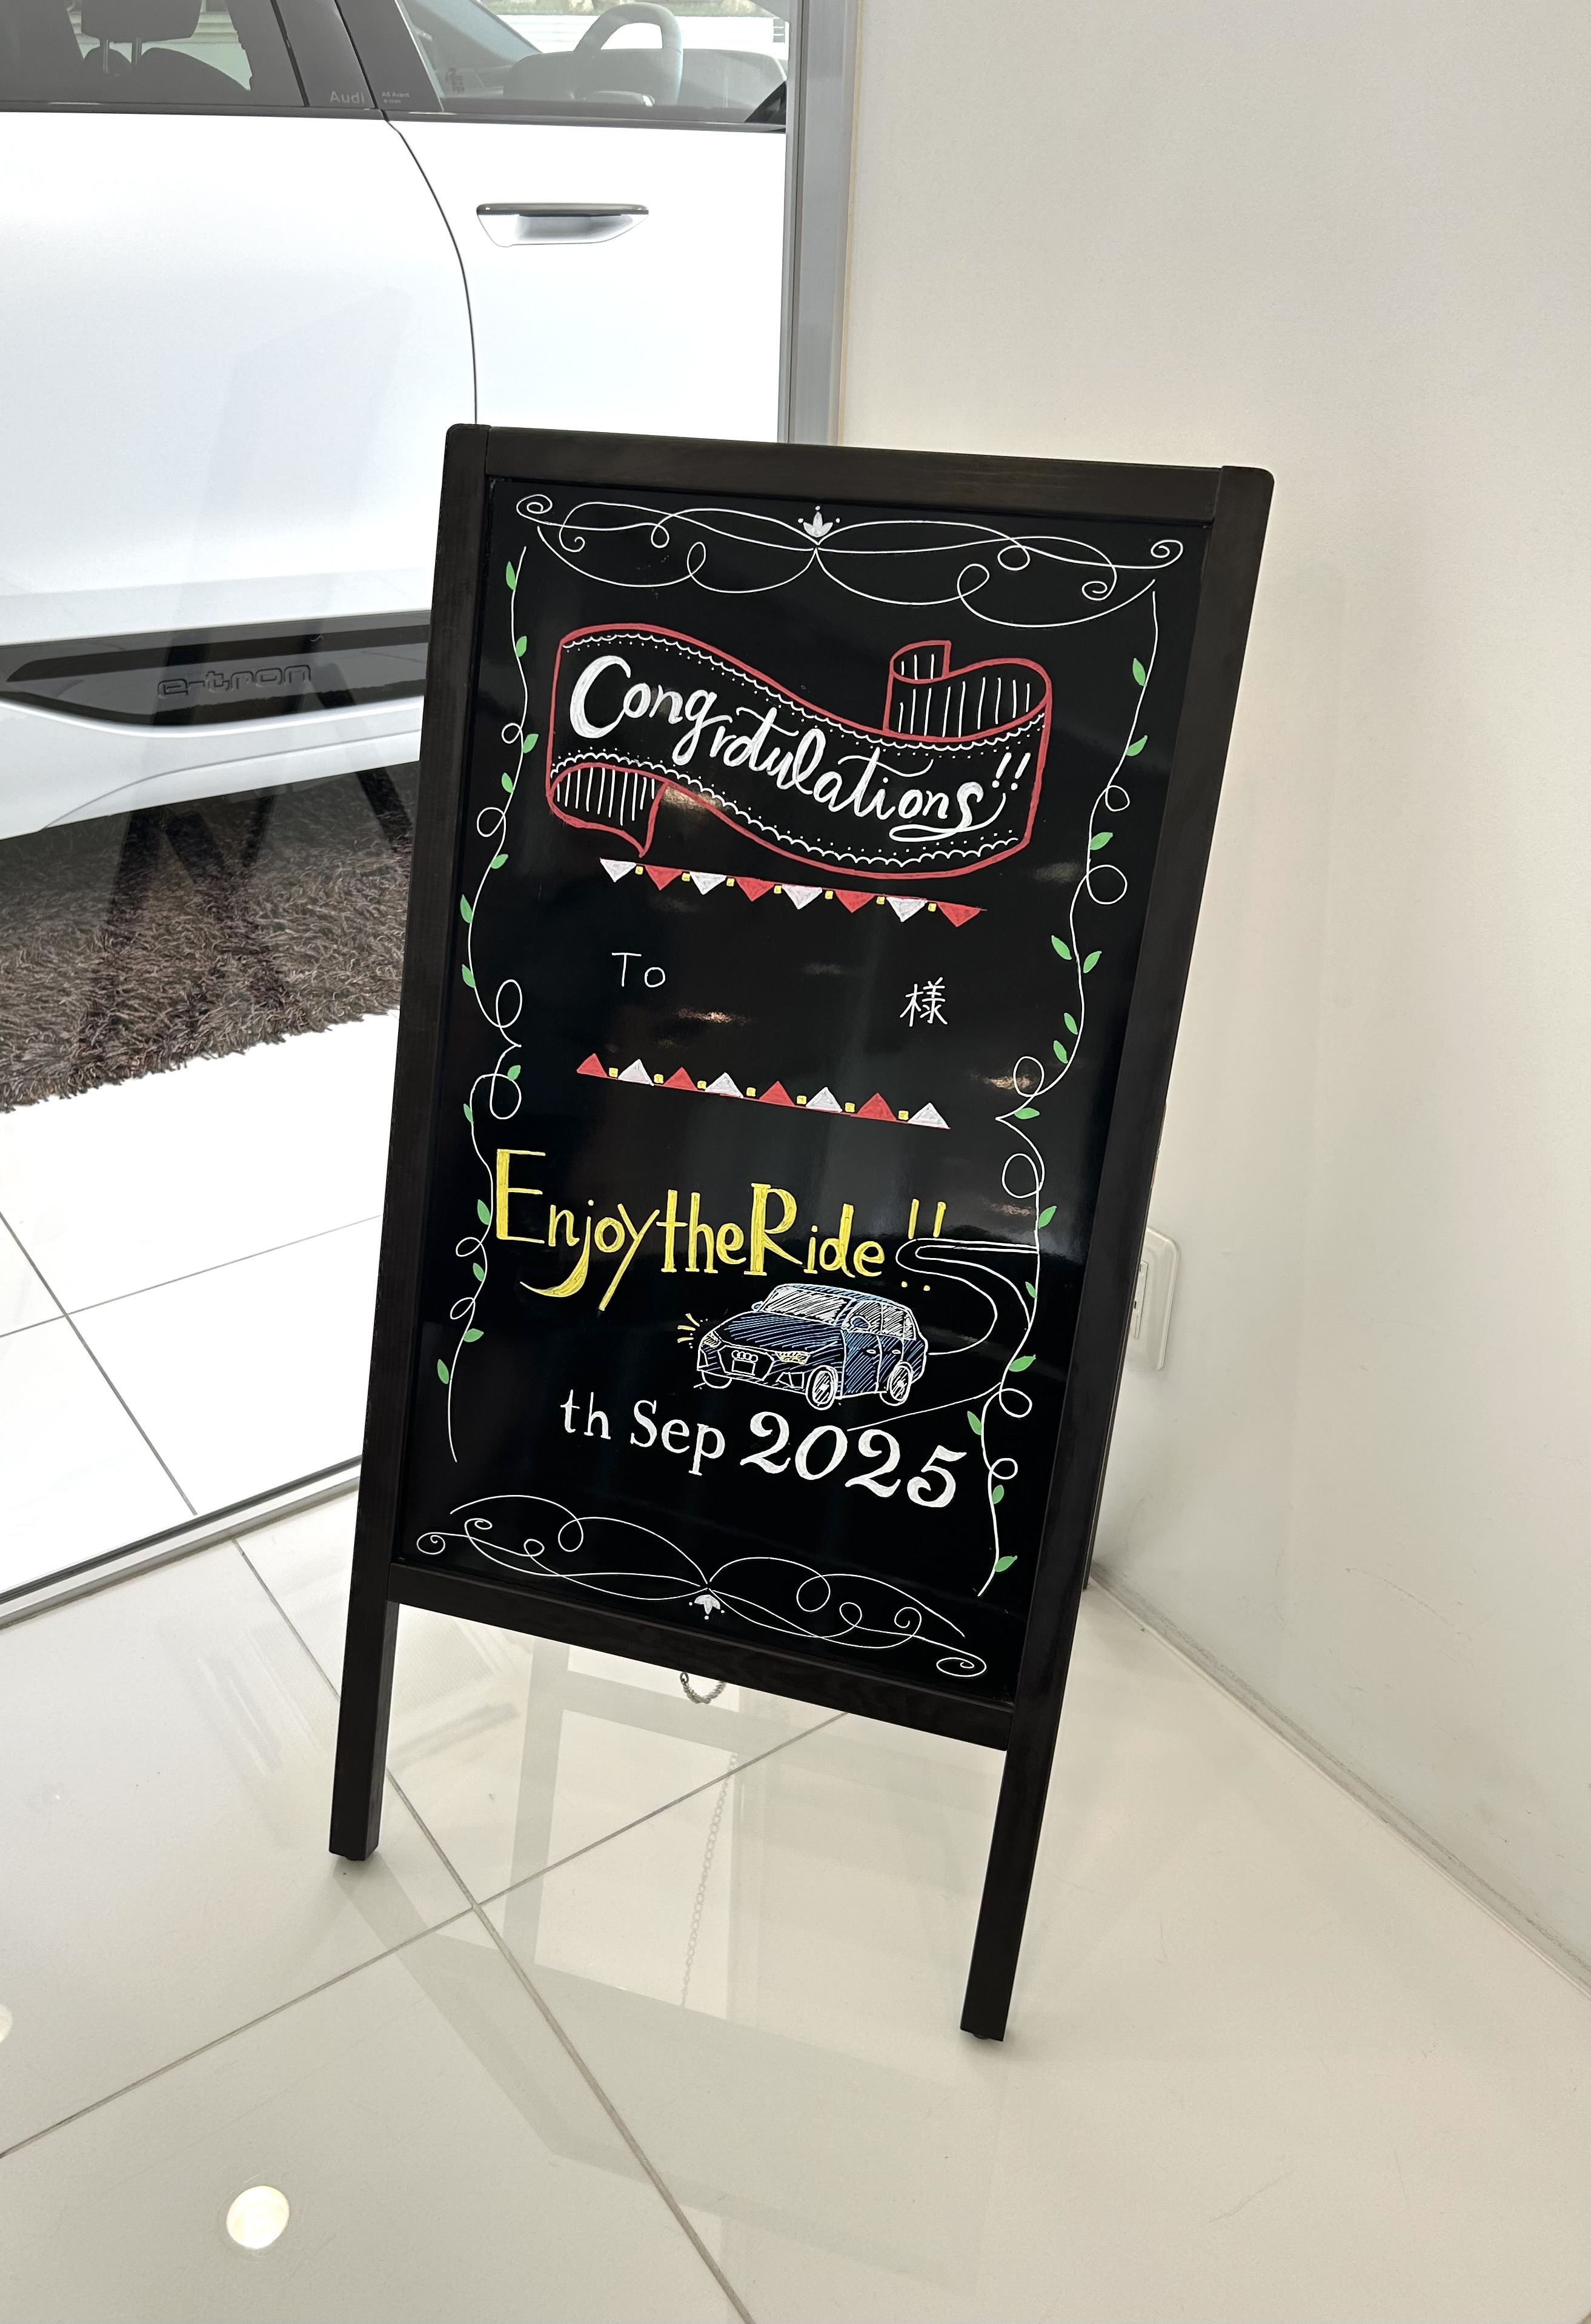 Audi
A6 Avant
e-tron
e-tron
Congratulations!!
To 様
Enjoy the Ride!!
th Sep 2025